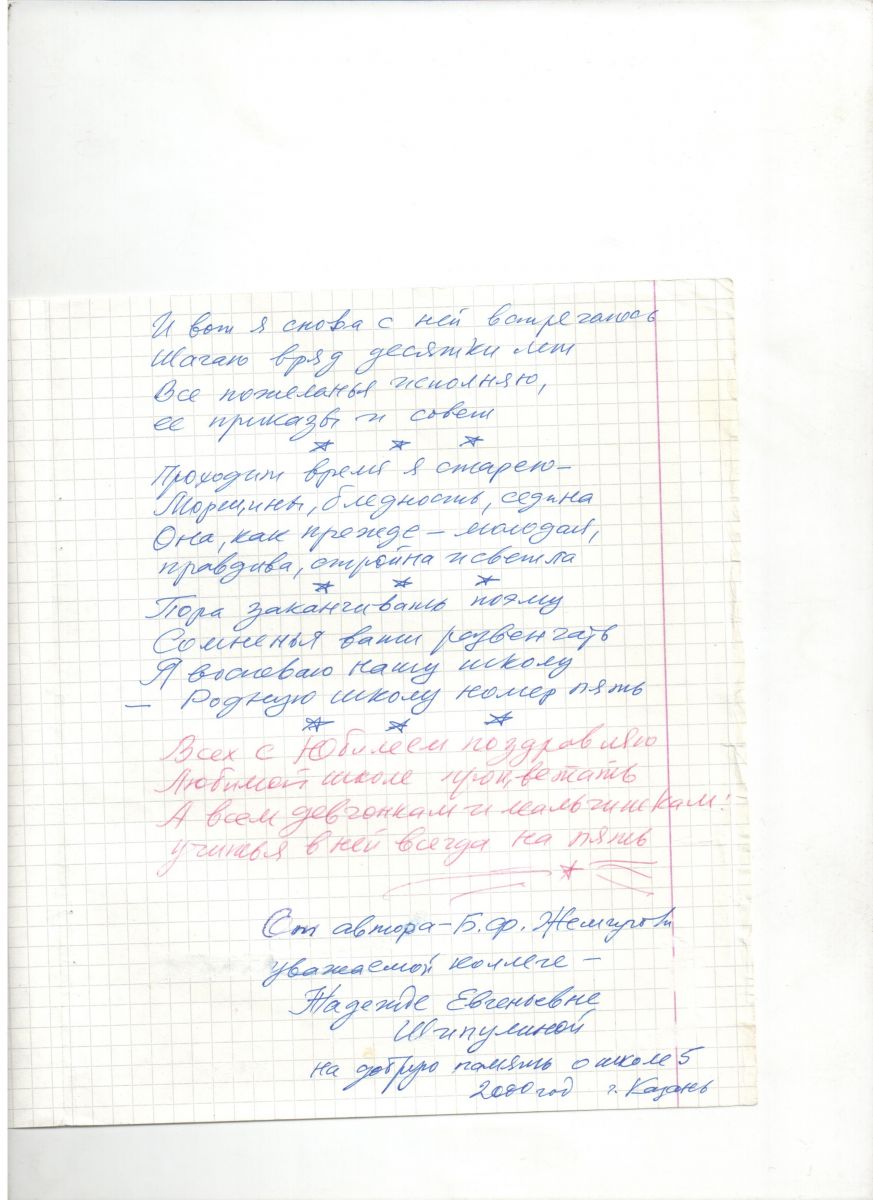 И вот я снова с ней встречаюсь
Шагаю вряд десятки лет
Все пожеланья исполняю,
ее приказы и совет
Проходит время я старею –
Морщины, бледность, седина
Она, как прежде – молодая,
правдива, стройна и светла
Пора заканчивать поэму
Сомненья ваши развенчать
Я воспеваю нашу школу
– Родную школу номер пять
Всех с Юбилеем поздравляю
Любимой школе процветать
А всем девчонкам и мальчишкам: –
учиться в ней всегда на пять
От автора – Б.Ф.
уважаемой коллеге –
Надежде Евгеньевне
Шипулиной
на добрую память о школе 5
2000 год г. Казань